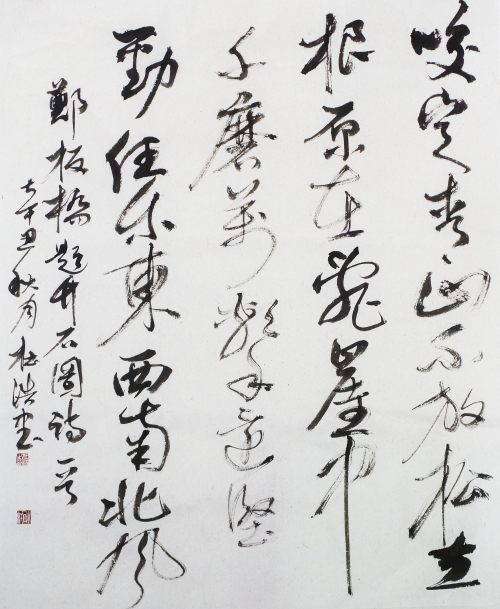 咬定青山不放松立
根原在亂崖中
千磨萬擊還堅
勁任尔東西南北風
鄭板橋題竹石圖詩一首
辛丑秋月杜浩書